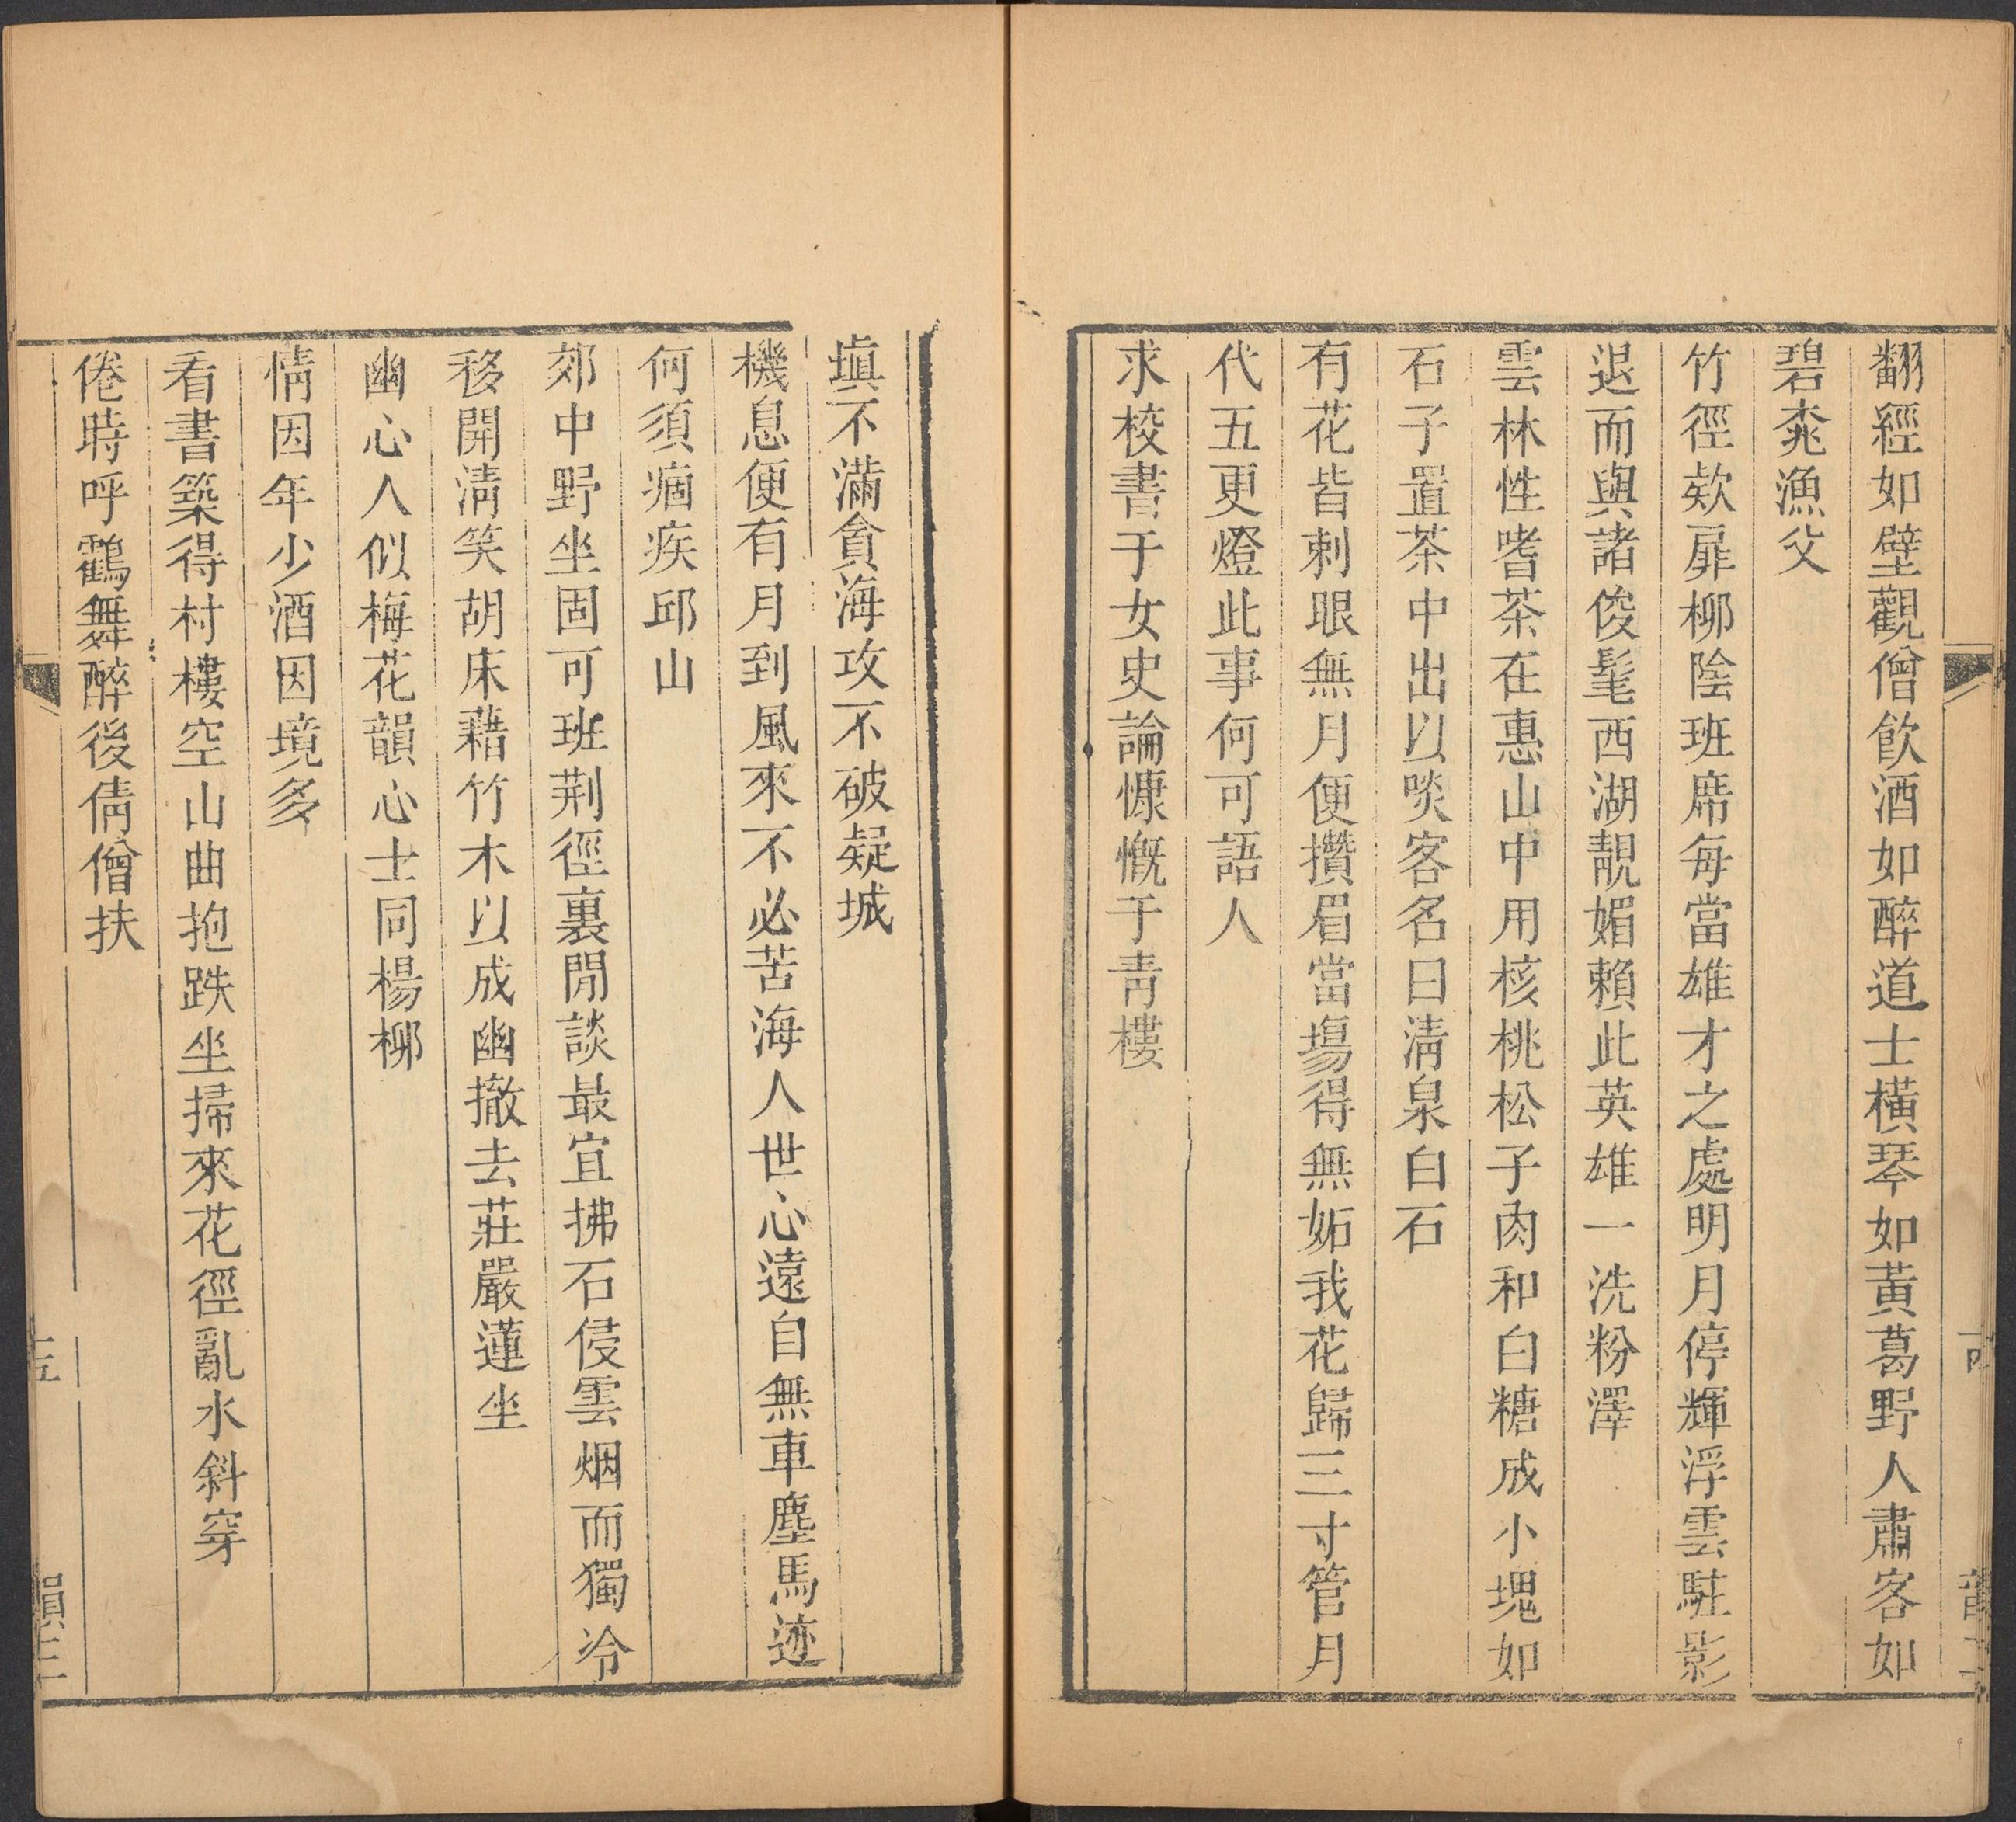 翻經如壁觀僧飮酒如醉道士橫琴如黃葛野人肅客如
碧桃漁父
竹徑欵扉柳陰班席每當雄才之處明月停輝浮雲駐影
退而與諸俊髦西湖靚媚賴此英雄一洗粉澤
雲林性嗜茶在惠山中用核桃松子肉和白糖成小塊如
石子置茶中出以啖客名曰淸泉白石
有花皆刺眼無月便攢眉當塲得無妬我花歸三寸管月
代五更燈此事何可語人
求校書于女史論慷慨于靑樓
塡不滿貪海攻不破疑城
機息便有月到風來不必苦海人世心遠自無車塵馬迹
何須痼疾邱山
郊中野坐固可班荆徑裏閒談最宜拂石侵雲烟而獨冷
移開淸笑胡床藉竹木以成幽撤去莊嚴蓮坐
幽心人似梅花韻心士同楊柳
情因年少酒因境多
看書築得村樓空山曲抱跌坐掃來花徑亂水斜穿
倦時呼鶴舞醉後倩僧扶
韻三